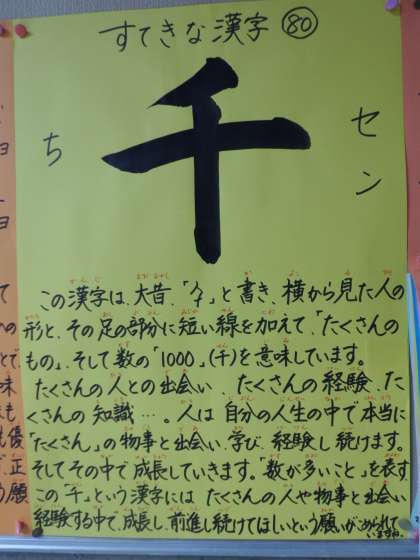 すてきな漢字 80
千
ち
セン
この漢字は、大昔、「」と書き、横から見た人の
形と、その足の部分に短い線を加えて、「たくさんの
もの」、そして数の「1000」(千)を意味しています。
たくさんの人との出会い、たくさんの経験、た
くさんの知識…。人は自分の人生の中で本当に
「たくさん」の物事と出会い、学び、経験し続けます。
そしてその中で成長していきます。「数が多いこと」を表す
この「千」という漢字には、たくさんの人や物事と出会い
経験する中で、成長し、前進し続けてほしいという願いがこめられて
いますね。